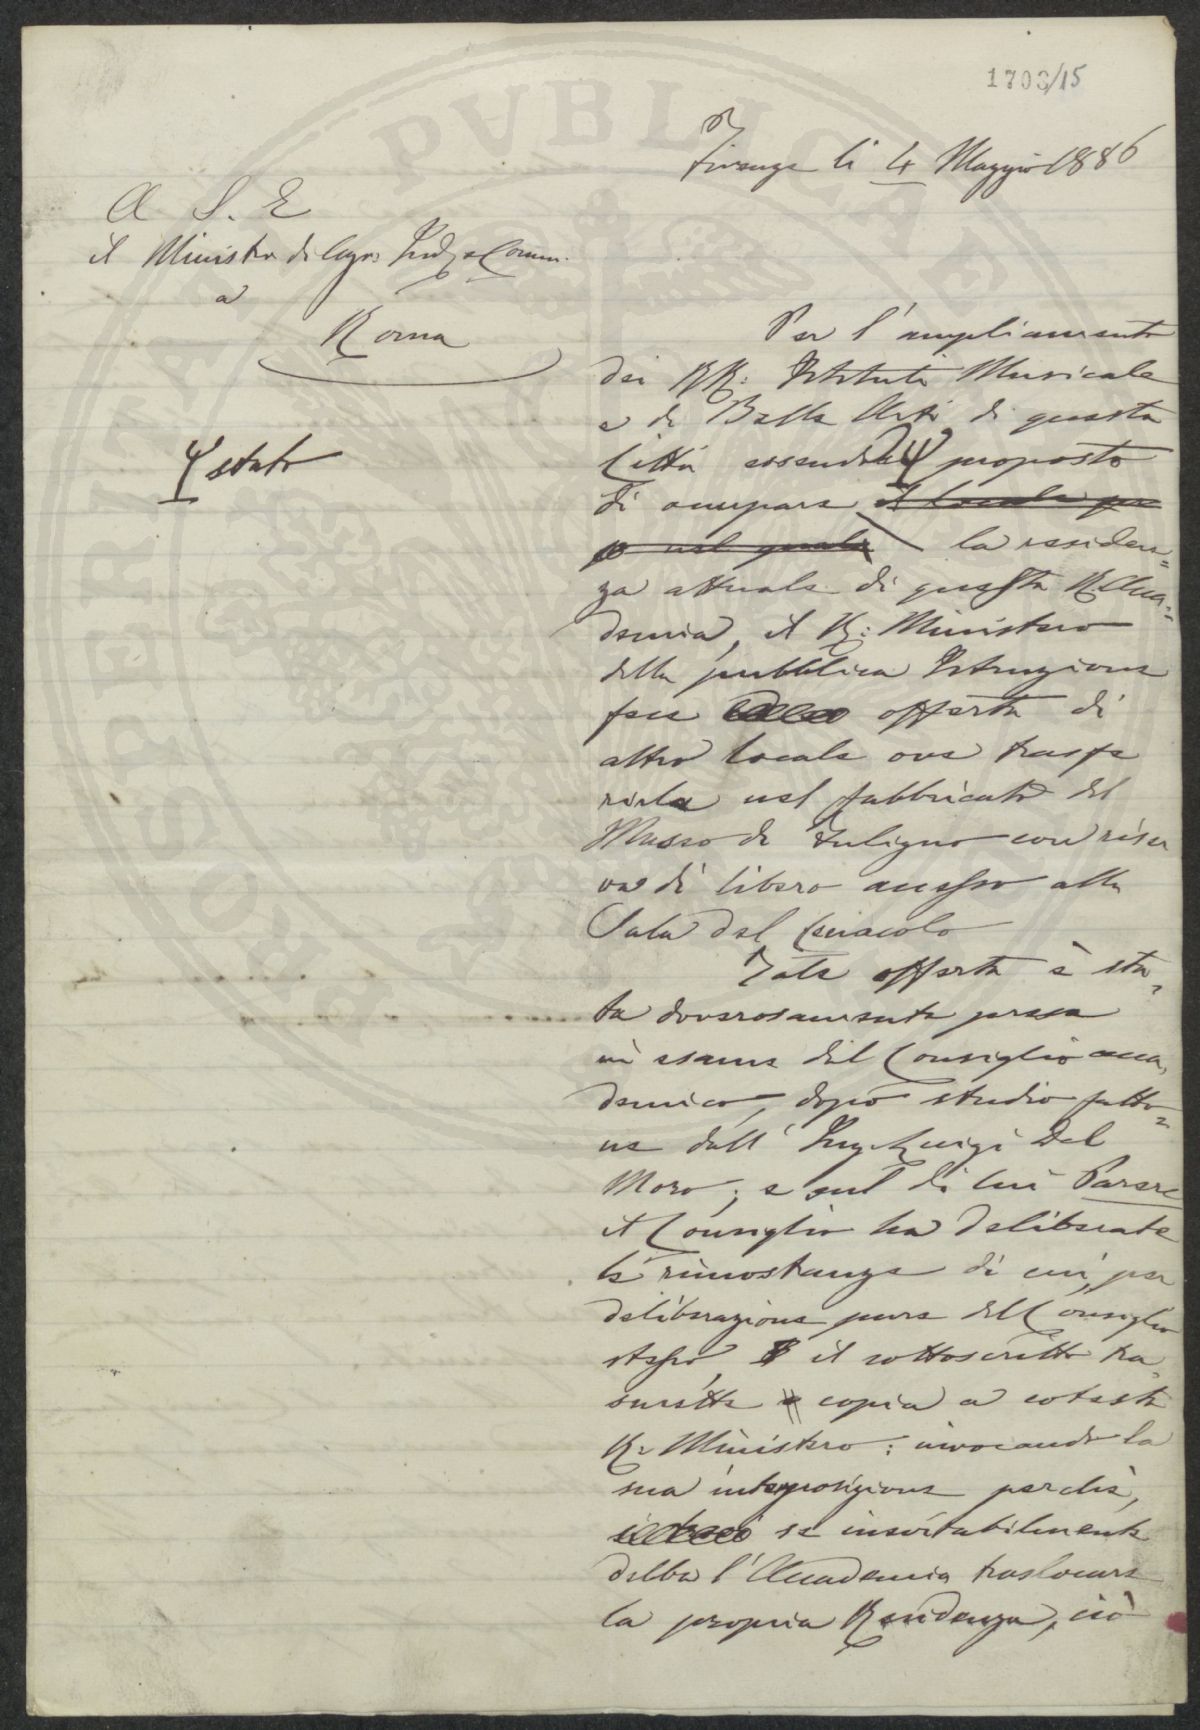 1703/15
Firenze li 4 Maggio 1886
A S. E
il Ministro di Agr: Ind. e Comm.
a
Roma
Per l'ampliamento
dei RR: Istituti Musicale
e di Belle Arti di questa
Città essendosi Ψ proposto
Ψ stato
di occupare il locale per
nel quale la residen=
za attuale di questa R Acca=
demia, il R: Ministero
della pubblica Istruzione
fece offerta di
altro locale ove trasfe
rirla nel fabbricato del
Museo di Fuligno con riser
va di libero accesso alla
Sala del Cenacolo
Tale offerta è sta=
ta doverosamente presa
in esame dal Consiglio acca=
demico, dopo studio fatto=
ne dall' Ing. Luigi Del
Moro; e sul di lui Parere
il Consiglio ha deliberate
le rimostranze di cui, per
deliberazione pure del Consiglio
stesso, il sottoscritto tra=
smette copia a cotesto
R. Ministero: invocando la
sua interposizione perchè,
se inevitabilmente
debba l'Accademia traslocare
la propria Residenza, ciò
PVBLICAE
PROSPERITATIS